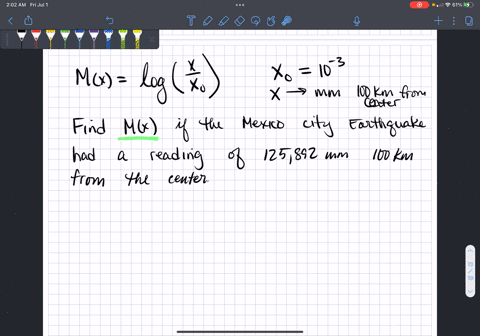 2:02 AM Fri Jul 1
61%
M(x) = log (x/x₀) x₀ = 10⁻³
x → mm 100 km from center
Find M(x) if the Mexico city Earthquake
had a reading of 125,892 mm 100 km
from the center